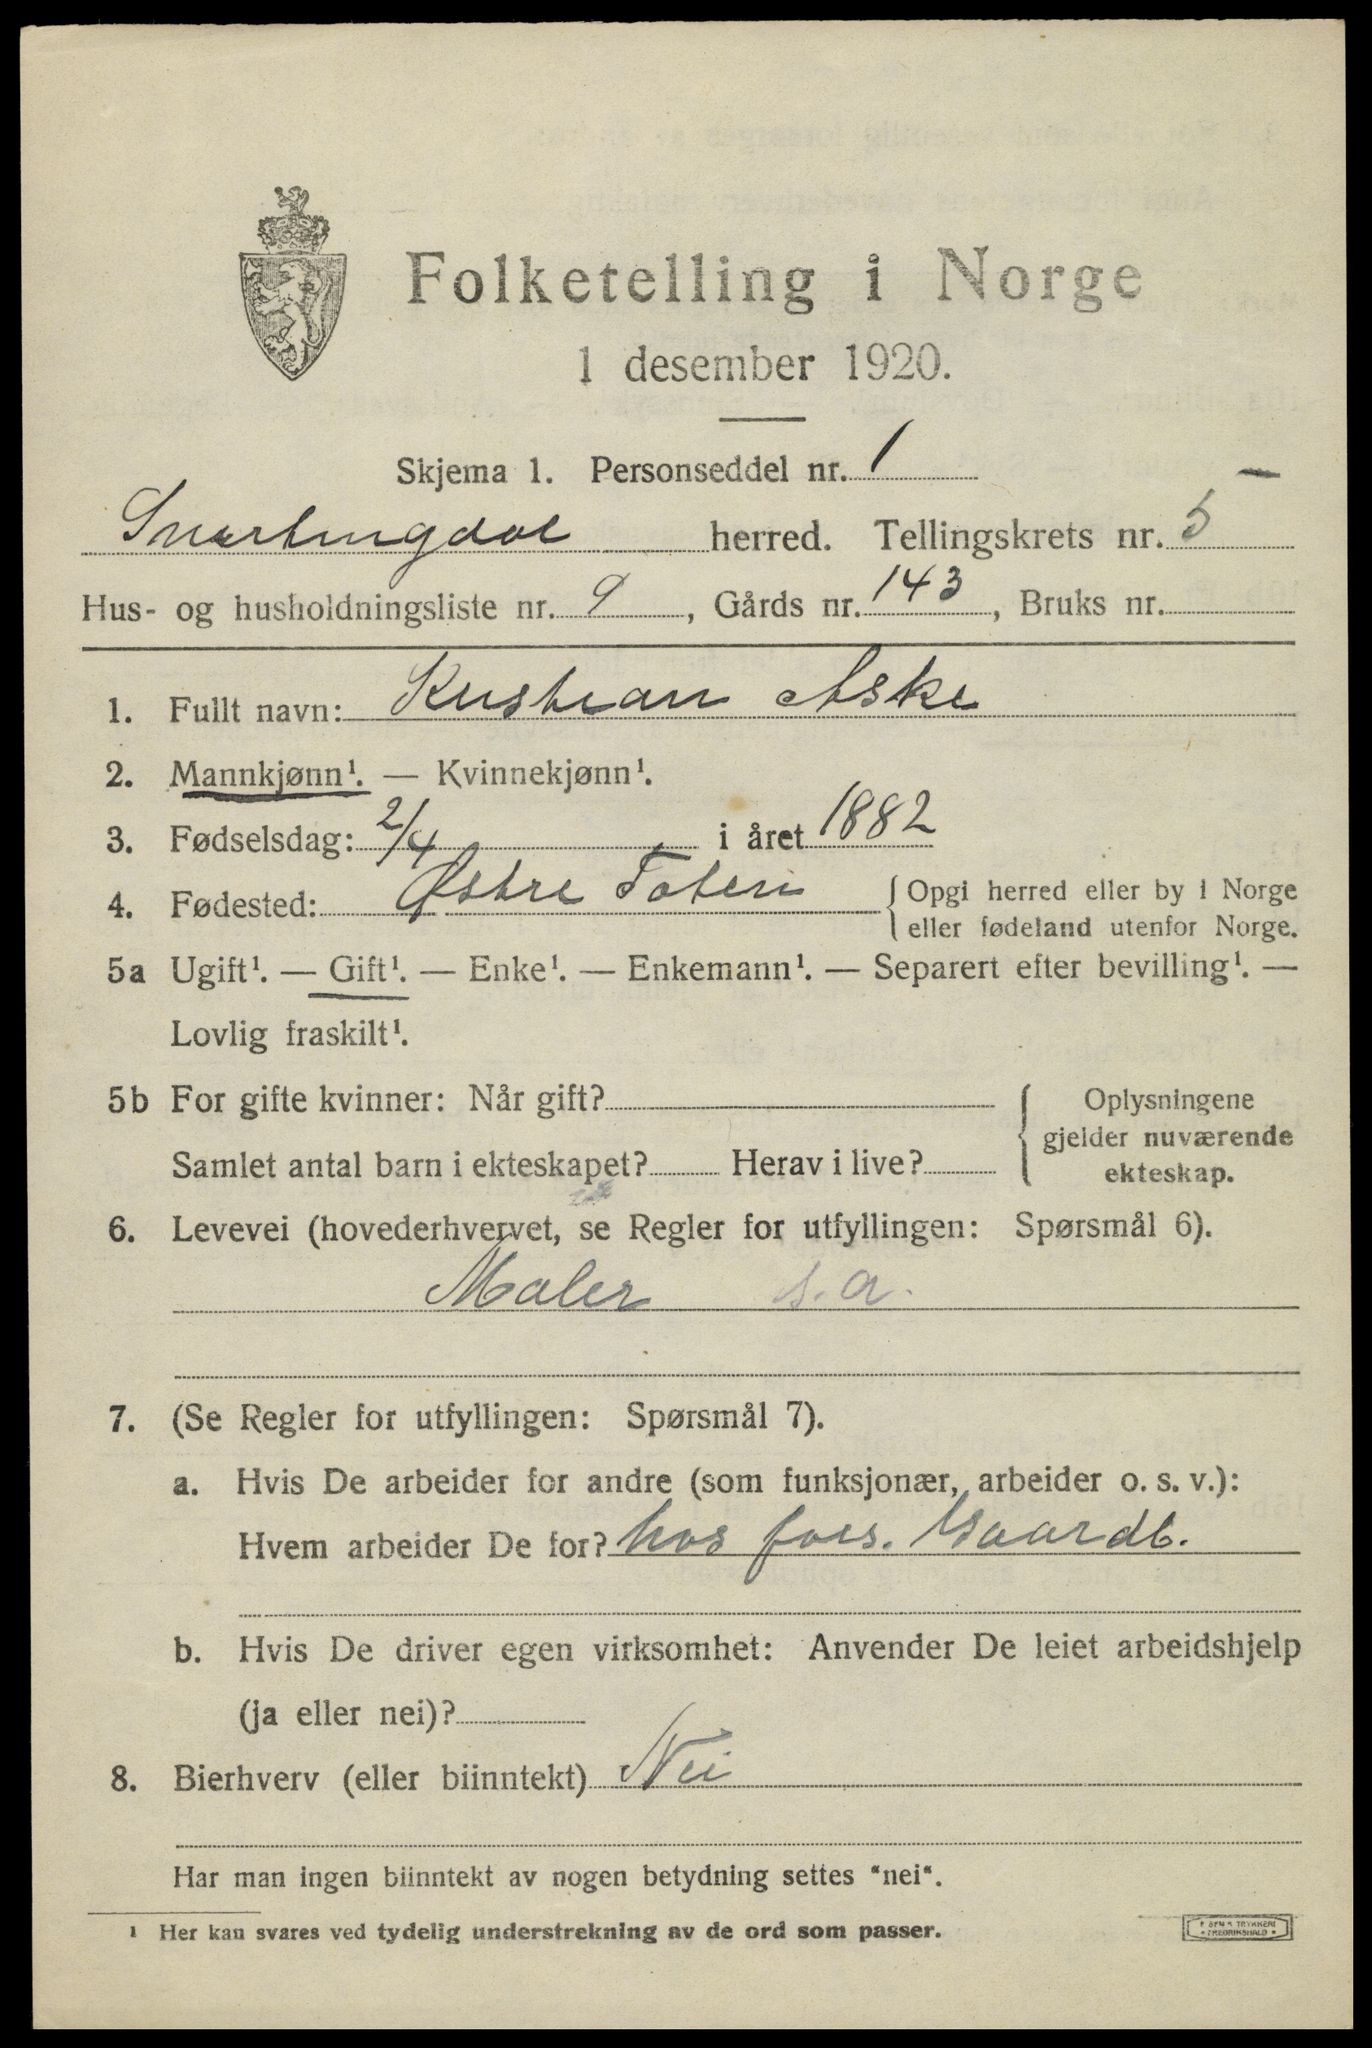 Folketelling i Norge
1 desember 1920.
Skjema 1. Personseddel nr. 1
Snertingdal herred. Tellingskrets nr. 5
Hus- og husholdningsliste nr. 9, Gårds nr. 143, Bruks nr.
1. Fullt navn: Kristian Aske
2. Mannkjønn¹. — Kvinnekjønn¹.
3. Fødselsdag: 2/4 i året 1882
4. Fødested: Østre Toten { Opgi herred eller by i Norge
eller fødeland utenfor Norge.
5a Ugift¹. — Gift¹. — Enke¹. — Enkemann¹. — Separert efter bevilling¹. —
Lovlig fraskilt¹.
5b For gifte kvinner: Når gift? { Oplysningene
gjelder nuværende
Samlet antal barn i ekteskapet? Herav i live? ekteskap.
6. Levevei (hovederhvervet, se Regler for utfyllingen: Spørsmål 6).
Maler s.a.
7. (Se Regler for utfyllingen: Spørsmål 7).
a. Hvis De arbeider for andre (som funksjonær, arbeider o. s. v.):
Hvem arbeider De for? hos fors. Gaardb.
b. Hvis De driver egen virksomhet: Anvender De leiet arbeidshjelp
(ja eller nei)?
8. Bierhverv (eller biinntekt) Nei
Har man ingen biinntekt av nogen betydning settes "nei".
¹ Her kan svares ved tydelig understrekning av de ord som passer.